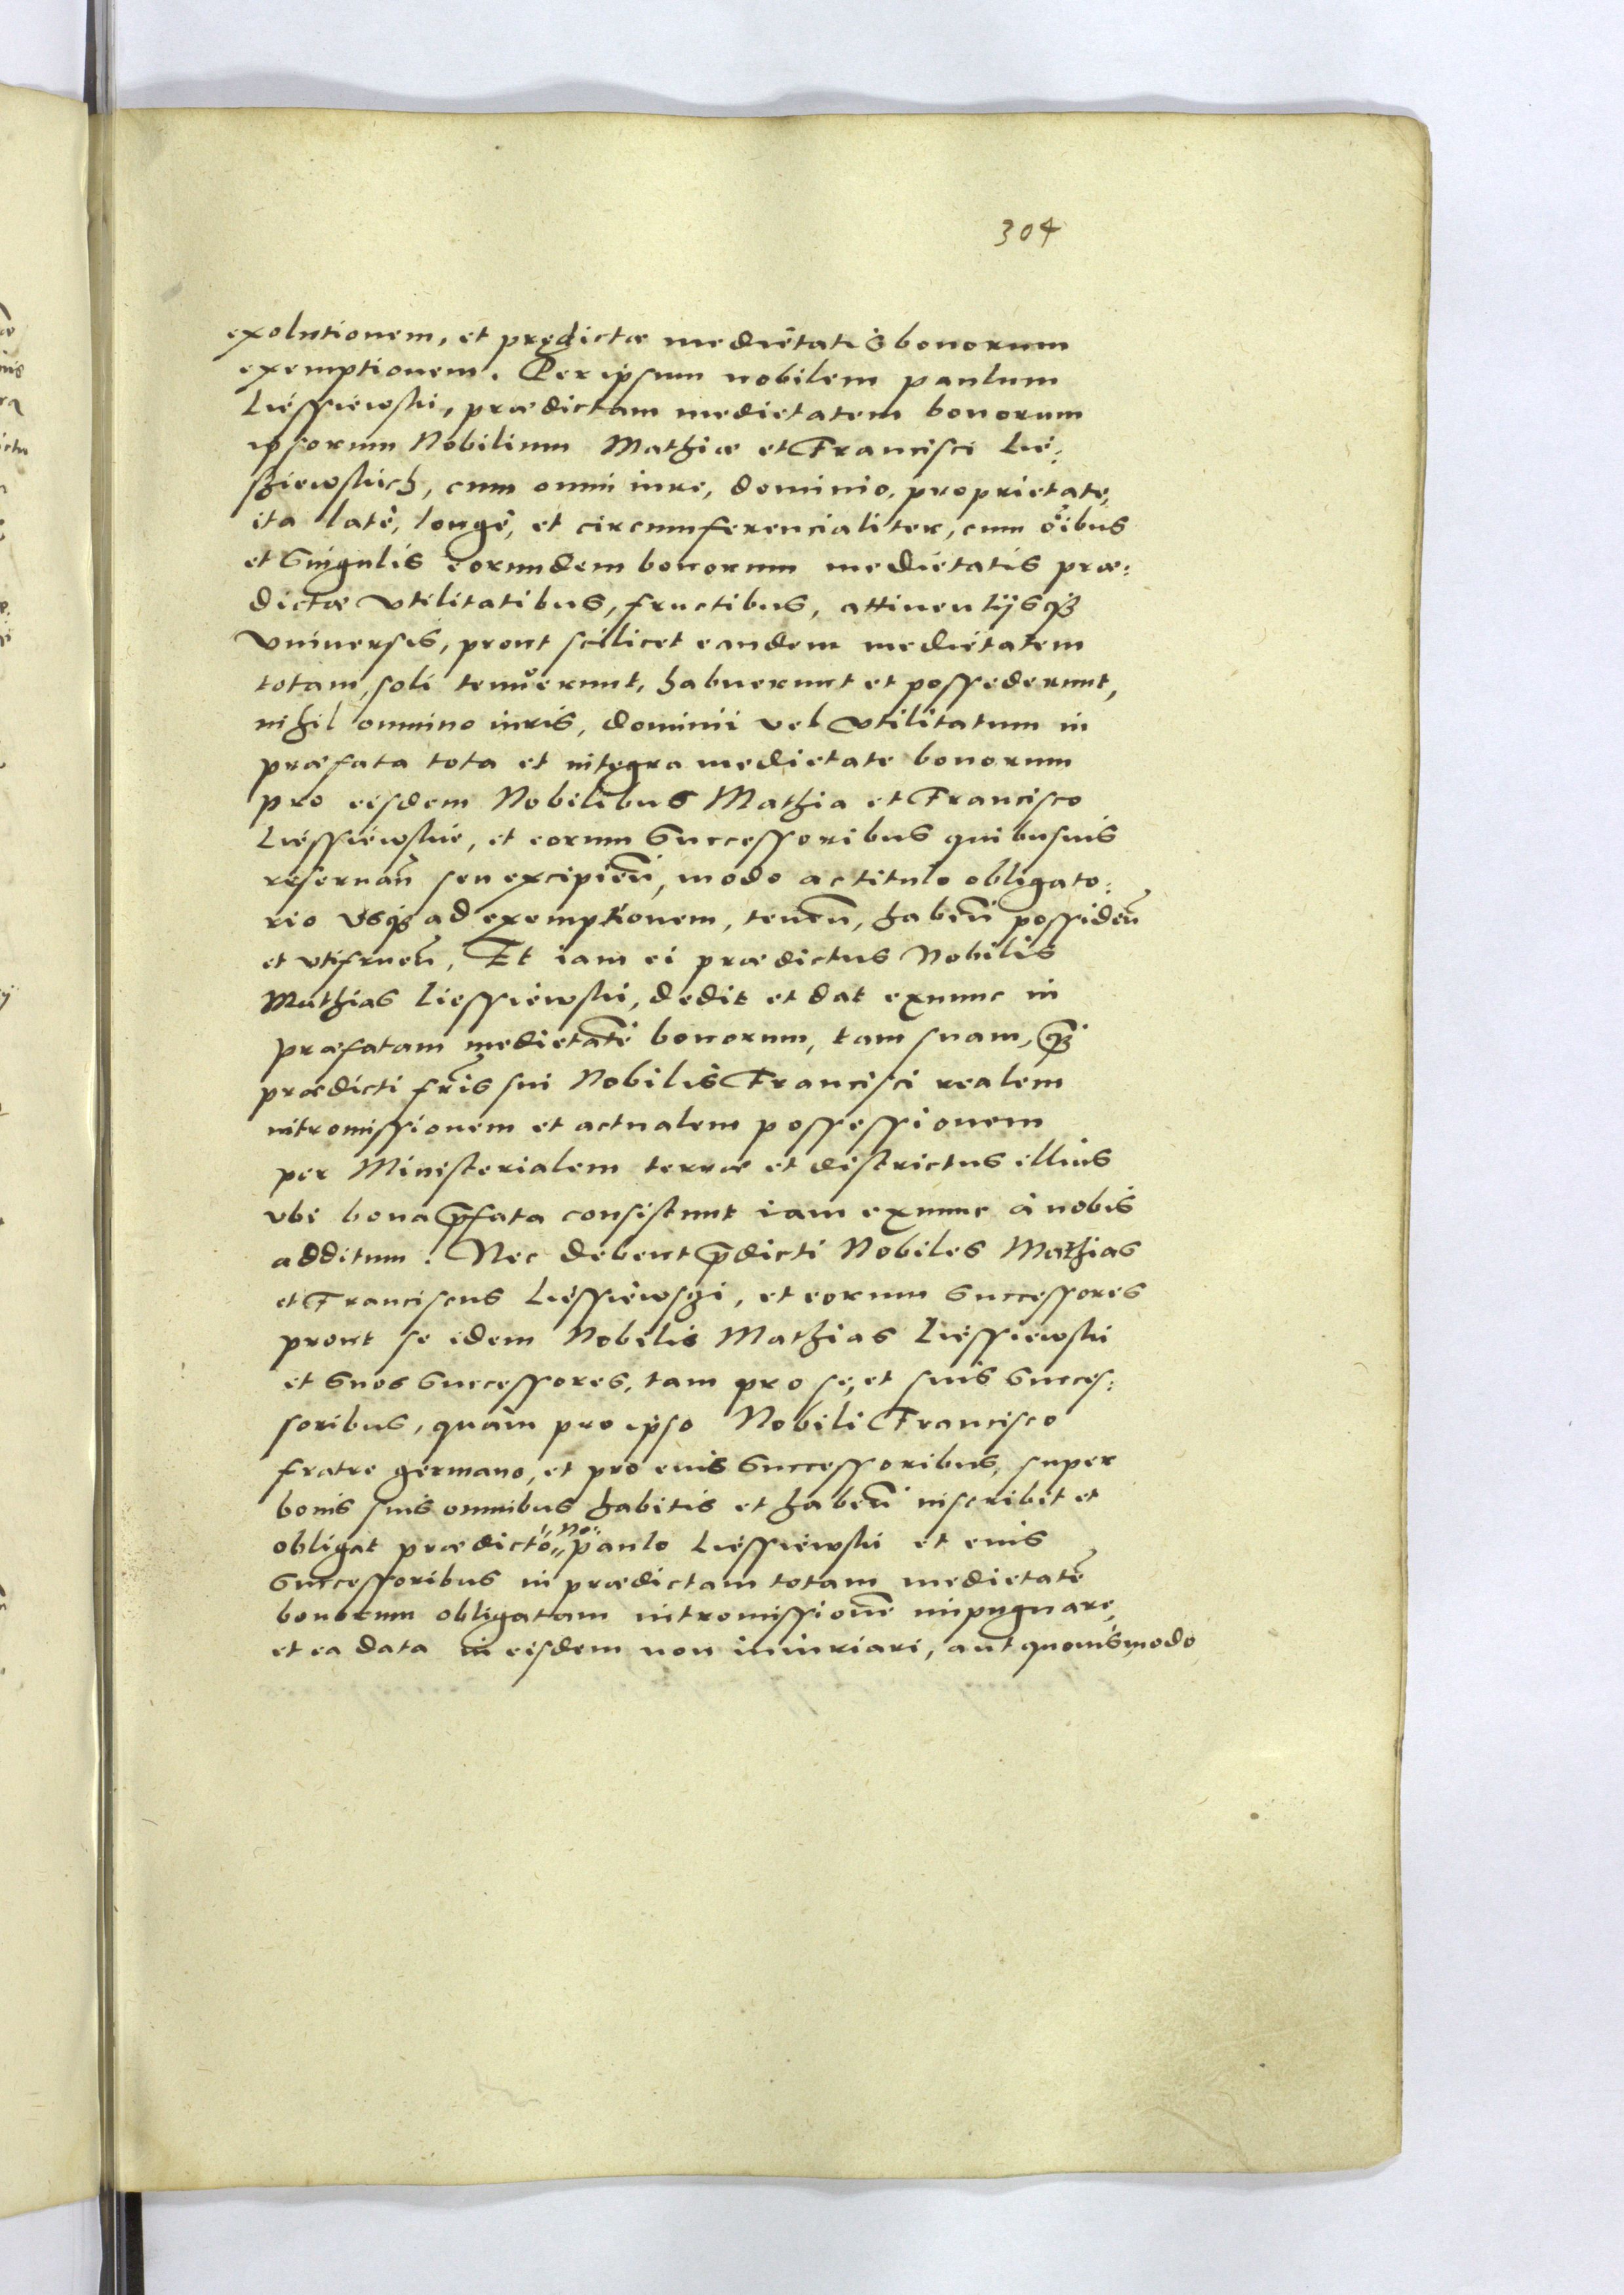 304
exolutionem, et prędictæ medietatis bonorum
exemptionem. Per ipsum nobilem paulum
Liessiewski, prædictam medietatem bonorum
ipsorum Nobilium Mathiæ et Francisci Lie:
sziewskich, cum omni iure, dominio, proprietate,
ita latè, longè, et circumferencialiter, cum oĩbus
et singulis eorundem bonorum medietatis præ:
dictæ vtilitatibus, fructibus, attinentijsqȝ
vniuersis, prout scilicet eandem medietatem
totam, soli tenuerunt, habuerunt et possederunt,
nihil omnino iuris, dominii vel vtilitatum in
præfata tota et integra medietate bonorum
pro eisdem Nobilibus Mathia et Francisco
Liessiewskie, et eorum Successoribus quibusuis
reseruañ seu excipieñ, modo ac titulo obligato:
rio vsqȝ ad exemptionem, teneñ, habeñ possideñ
et vtifrueñ, Et iam ei prædictus Nobilis
Mathias Liessiewski, dedit et dat exnunc in
præfatam medietatẽ bonorum, tam suam, qȝ̃
prædicti fr̃is sui Nobilis Francisci realem
intromissionem et actualem possessionem
per Ministerialem terræ et districtus illius
vbi bona p̃fata consistunt iam exnunc à nobis
additum. Nec debent p̃dicti Nobiles Mathias
et Franciscus Liessiewszi, et eorum Successores
prout se idem Nobilis Mathias Liessiewski
et Suos Successores, tam pro se, et suis Succes:
soribus, quàm pro ipso Nobili Francisco
fratre germano, et pro euis Successoribus, super
bonis suis omnibus habitis et habeñ inscribit et
obligat prædicto No paulo Liessiewski et euis
Successoribus in prædictam totam medietatẽ
bonorum obligatam intromissionẽ impugnare,
et ea data in eisdem non iniuriari, aut quouismodo